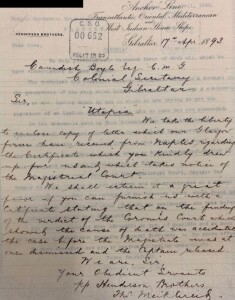 Anchor Line
Transatlantic, Oriental, Mediterranean
and
West Indian Steam Ships
HENDERSON BROTHERS.
C S O
00652
Gibraltar 17th Apr. 1893
Cavendish Boyle Esq C.M.G
Colonial Secretary
Gibraltar
Sir,
Utopia
We take the liberty
to enclose copy of letter which our Glasgow
firm have received from Naples regarding
the Certificate which you kindly
for us and which takes notice of
the Magistrates Court.
We shall esteem it a great
favor if you can furnish us with a
Certificate stating that on the finding
of the verdict of the Coroners Court which
shows the cause of death was accidental
the case before the Magistrate was at
once dismissed and the Captain released
We are Sir,
Your Obedient Servants
pp Henderson Brothers